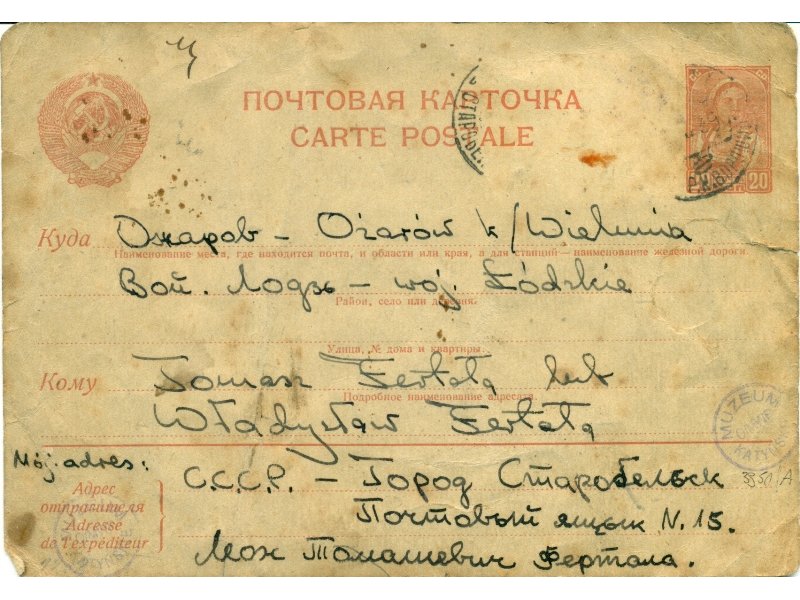 ПОЧТОВАЯ КАРТОЧКА
CARTE POSTALE
20
Куда Ожаров - Ożarów k/Wielunia
Наименование места, где находится почта, и области или края, а для станций — наименование железной дороги.
Вой. Лодзь - woj. Łódzkie
Район, село или деревня.
Улица, № дома и квартиры.
Кому Tomasz Fertała lub
Подробное наименование адресата.
Władysław Fertała
MUZEUM
KATYŃSKIE
Mój adres: С.С.С.Р. - Город Старобельск
Адрес отправителя
Adresse de l'expéditeur
Почтовый ящык N. 15.
Томашевич Фертала.